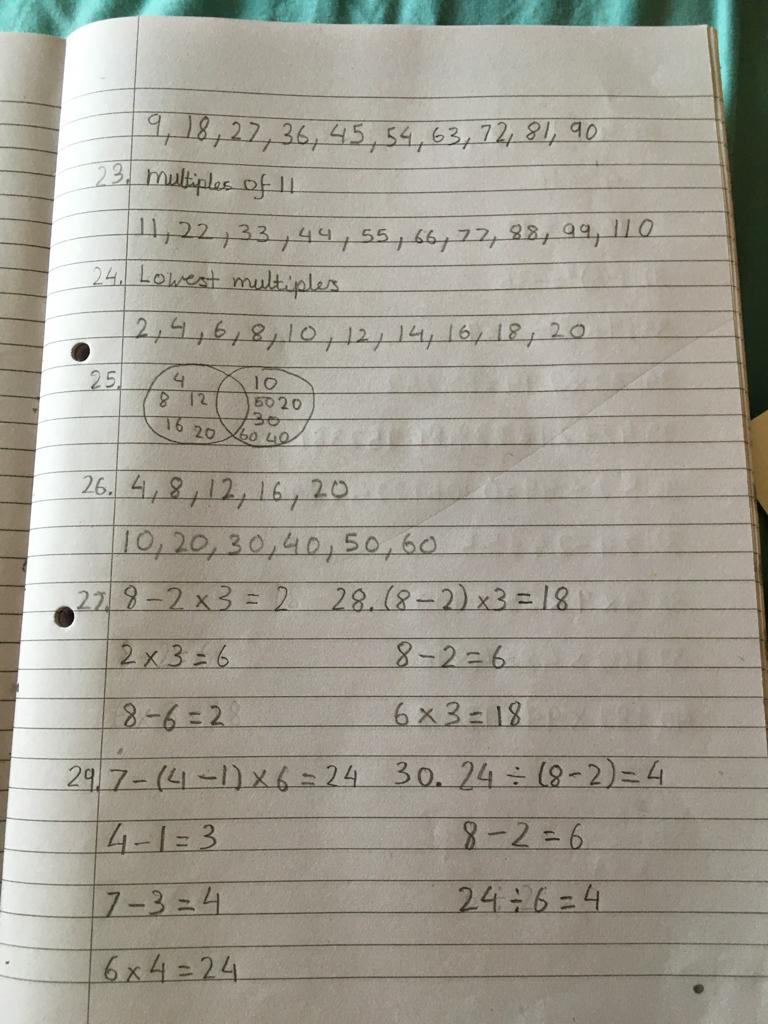 9, 18, 27, 36, 45, 54, 63, 72, 81, 90
23. multiples of 11
11, 22, 33, 44, 55, 66, 77, 88, 99, 110
24. Lowest multiples
2, 4, 6, 8, 10, 12, 14, 16, 18, 20
25. 4 10
8 12 50 20
16 20 30
60 40
26. 4, 8, 12, 16, 20
10, 20, 30, 40, 50, 60
27. 8 - 2 × 3 = 2 28. (8 - 2) × 3 = 18
2 × 3 = 6 8 - 2 = 6
8 - 6 = 2 6 × 3 = 18
29. 7 - (4 - 1) × 6 = 24 30. 24 ÷ (8 - 2) = 4
4 - 1 = 3 8 - 2 = 6
7 - 3 = 4 24 ÷ 6 = 4
6 × 4 = 24